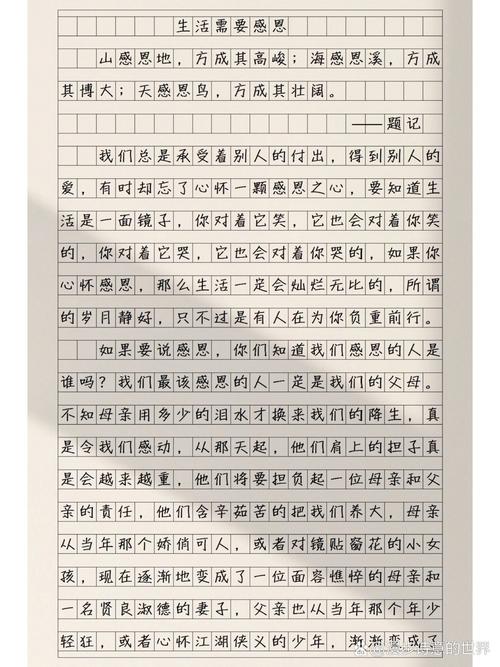 生活需要感恩
山感恩地，方成其高峻；海感恩溪，方成
其博大；天感恩鸟，方成其壮阔。
——题记
我们总是承受着别人的付出，得到别人的
爱，有时却忘了心怀一颗感恩之心，要知道生
活是一面镜子，你对着它笑，它也会对着你笑
的，你对着它哭，它也会对着你哭的，如果你
心怀感恩，那么生活一定会灿烂无比的，所谓
的岁月静好，只不过是有人在为你负重前行。
如果要说感恩，你们知道我们感恩的人是
谁吗？我们最该感恩的人一定是我们的父母。
不知母亲用多少的泪水才换来我们的降生，真
是令我们感动，从那天起，他们肩上的担子真
是会越来越重，他们将要担负起一位母亲和父
亲的责任，他们含辛茹苦的把我们养大，母亲
从当年那个娇俏可人，或者对镜贴窗花的小女
孩，现在逐渐地变成了一位面容憔悴的母亲和
一名贤良淑德的妻子，父亲也从当年那个年少
轻狂，或者心怀江湖侠义的少年，渐渐变成了
的世界